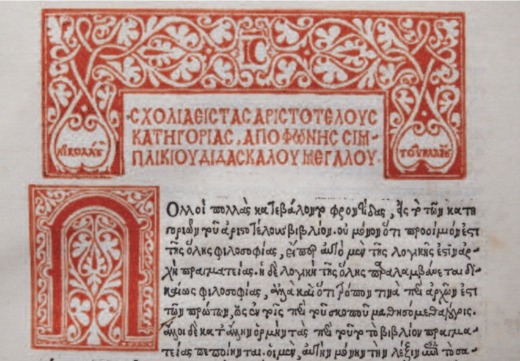 ΝΙΚΟΛΑΟΥ
ΣΧΟΛΙΑ ΕΙΣ ΤΑΣ ΑΡΙΣΤΟΤΕΛΟΥΣ
ΚΑΤΗΓΟΡΙΑΣ, ΑΠΟ ΦΩΝΗΣ ΣΙΜ-
ΠΛΙΚΙΟΥ ΔΙΔΑΣΚΑΛΟΥ ΜΕΓΑΛΟΥ.
ΠΟλλοὶ πολλὰς κατεβάλοντο φροντίδας, εἰς τὸ τῶν κατη
γοριῶν τοῦ ἀριστοτέλους βιβλίον. οὐ μόνον ὅτι προοίμιόν ἐστι
τῆς ὅλης φιλοσοφίας, εἴπερ αὐτὸ μὲν τῆς λογικῆς ἐστὶν ἀρ-
χὴ πραγματείας. ἡ δὲ λογικὴ τῆς ὅλης προλαμβάνεται δι-
καίως φιλοσοφίας, ἀλλὰ καὶ ὅτι τρόπον τινὰ περὶ ἀρχῶν ἐστι
τῶν πρώτων, ὡς ἐν τοῖς περὶ τοῦ σκοποῦ μαθησόμεθα λόγοις.
ἄλλοι δὲ κατ' ἄλλην ὁρμὴν τὰς περὶ τουτὶ τὸ βιβλίον πραγμα-
τείας πεποίηνται. οἱ μὲν, αὐτὴν μόνην τὴν λέξιν ἐπὶ τὸ σα-